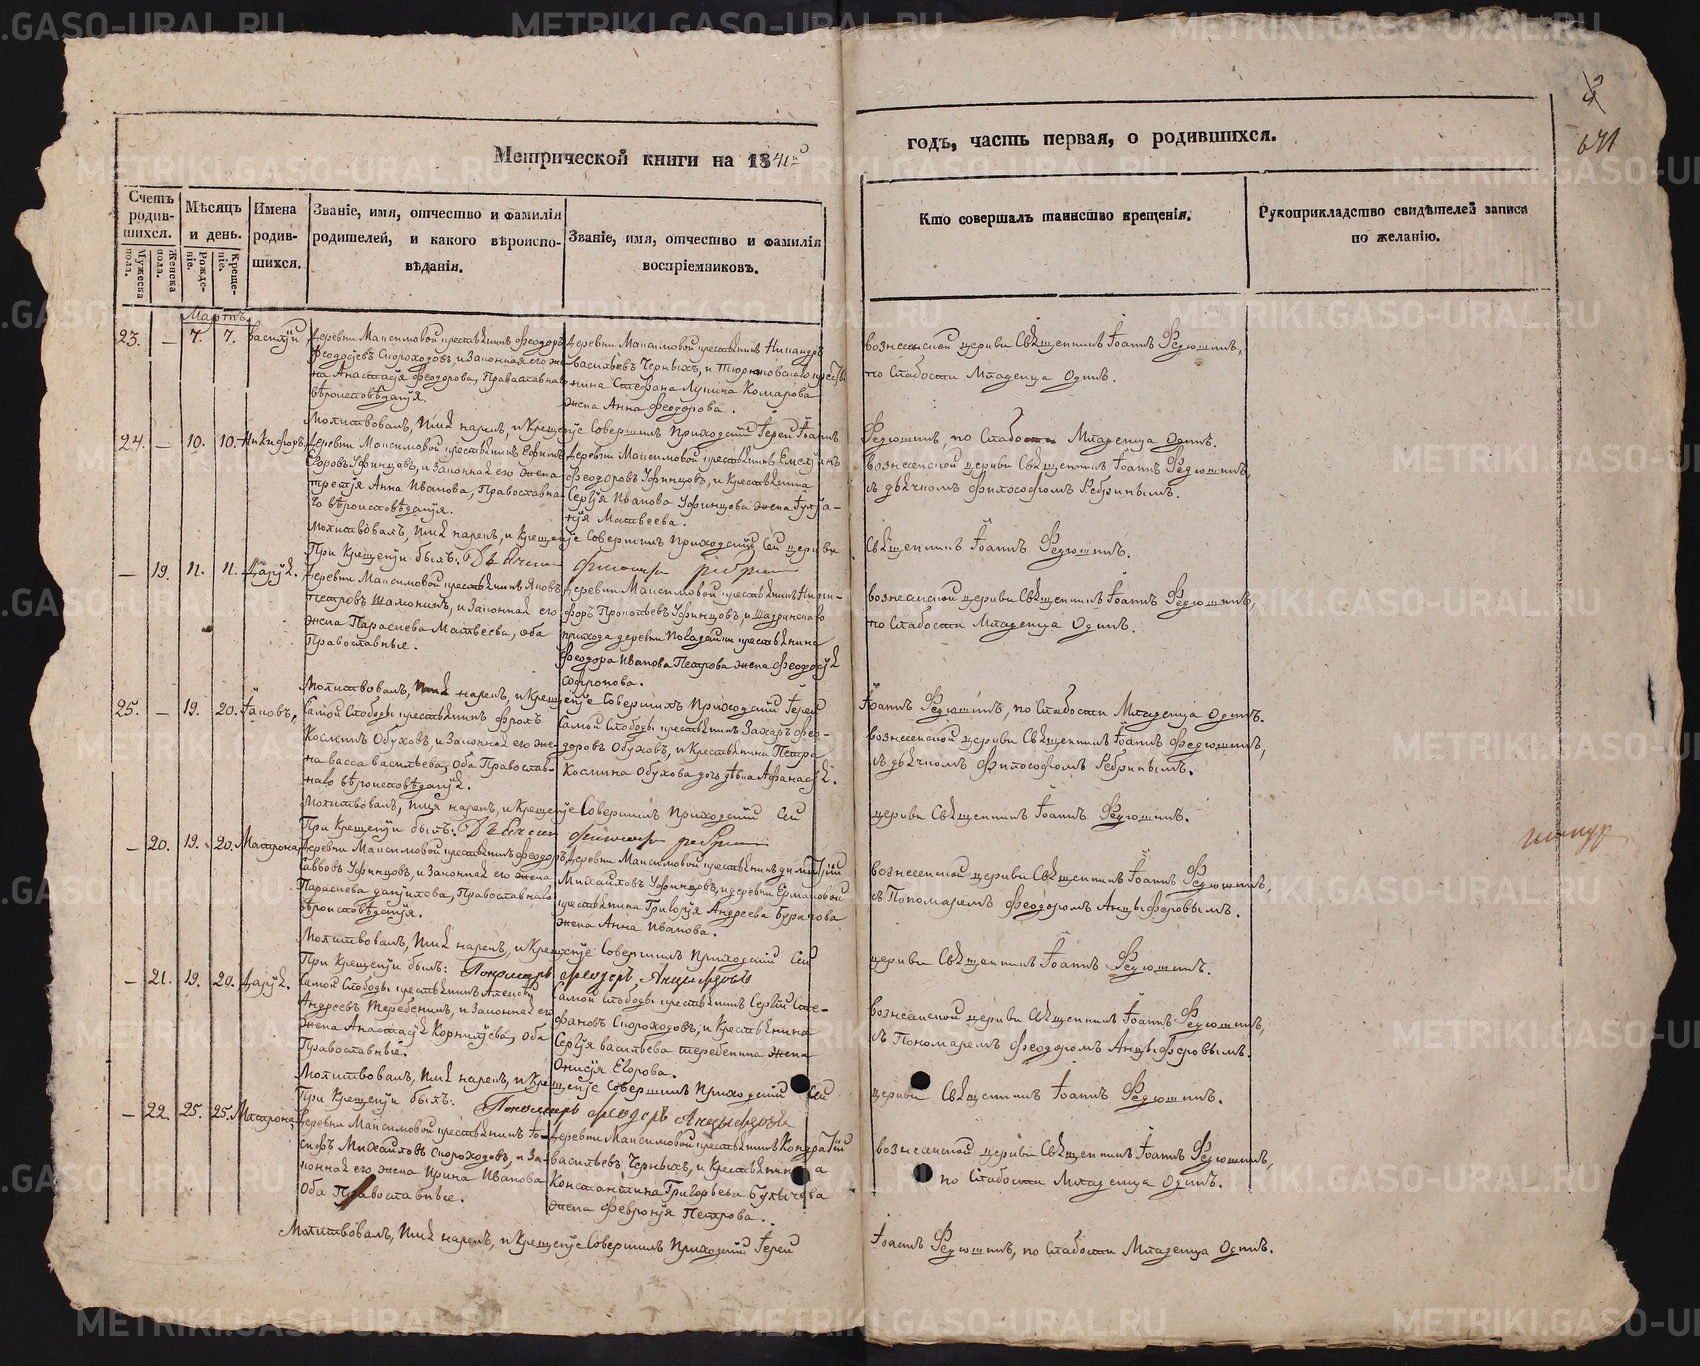 Метрической книги на 1841й
годъ, часть первая, о родившихся.
641
Счетъ родившихся.
Мужеска пола.
Женска пола.
Мѣсяцъ и день.
Рожденіе.
Крещеніе.
Имена родившихся.
Званіе, имя, отчество и фамилія родителей, и какого вѣроисповѣданія.
Званіе, имя, отчество и фамилія воспріемниковъ.
Кто совершалъ таинство крещенія.
Рукоприкладство свидѣтелей записи по желанію.
Мартъ
23. — 7. 7. Василій
Деревни Максимовой крестьянинъ Феодоръ
Феодосіевъ Скороходовъ, и Законная его же-
на Анастасія Феодорова, Православнаго
вѣроисповѣданія.
Деревни Максимовой крестьянинъ Никандръ
Васильевъ Черныхъ, и
Стефана Лукина Комарова
жена Анна Феодорова.
Вознесенской церкви Священникъ Іоаннъ Федюшинъ,
по Слабости Младенца Одинъ.
Молитвовалъ, Имя нарекъ, и Крещеніе Совершилъ Приходскій Іерей Іоаннъ
Федюшинъ, по Слабости Младенца Одинъ.
24. — 10. 10. Никифоръ,
Деревни Максимовой крестьянинъ Ефимъ
Егоровъ Уфинцовъ, и Законная его жена
третія Анна Иванова, Православна-
го вѣроисповѣданія.
Деревни Максимовой крестьянинъ Емеліанъ
Феодоровъ Уфинцовъ, и Крестьянина
Сергія Иванова Уфинцова жена Іуліа-
нія Матвеева.
Вознесенской церкви Священникъ Іоаннъ Федюшинъ,
съ дьячкомъ Философомъ Ребринымъ.
Молитвовалъ, Имя нарекъ, и Крещеніе Совершилъ Приходскій Сей церкви
Священникъ Іоаннъ Федюшинъ.
При Крещеніи былъ: Дьячекъ Философъ Ребринъ
— 19. 11. 11. Дарія.
Деревни Максимовой крестьянинъ Яковъ
Петровъ Шамонинъ, и Законная его
жена Параскева Матвеева, оба
Православные.
Деревни Максимовой крестьянинъ Ники-
форъ Прокопьевъ Уфинцовъ, и Шадринскаго
прихода деревни крестьянина
Феодора Иванова Петрова жена Феодосія
Софронова.
Вознесенской церкви Священникъ Іоаннъ Федюшинъ,
по Слабости Младенца Одинъ.
Молитвовалъ, Имя нарекъ, и Крещеніе Совершилъ Приходскій Іерей
Іоаннъ Федюшинъ, по Слабости Младенца Одинъ.
25. — 19. 20. Іаковъ,
Самой Слободы крестьянинъ Фролъ
Космичь Обуховъ, и Законная его же-
на Васса Васильева, оба Православ-
наго вѣроисповѣданія.
Самой Слободы крестьянинъ Захаръ Фео-
доровъ Обуховъ, и Крестьянина Петра
Космина Обухова дочь дѣвица Афанасія.
Вознесенской церкви Священникъ Іоаннъ Федюшинъ,
съ дьячкомъ Философомъ Ребринымъ.
Молитвовалъ, Имя нарекъ, и Крещеніе Совершилъ Приходскій Сей
церкви Священникъ Іоаннъ Федюшинъ.
При Крещеніи былъ: Дьячекъ Философъ Ребринъ
— 20. 19. 20. Матрона,
Деревни Максимовой крестьянинъ Феодоръ
Саввовъ Уфинцовъ, и Законная его жена
Параскева Данилова, Православнаго
вѣроисповѣданія.
Деревни Максимовой крестьянинъ Димитрій
Михайловъ Уфинцовъ, и деревни Ермаковой
крестьянина Григорія Андреева
жена Анна Иванова.
Вознесенской церкви Священникъ Іоаннъ Федюшинъ,
съ Пономаремъ Феодоромъ Анцыферовымъ.
Молитвовалъ, Имя нарекъ, и Крещеніе Совершилъ Приходскій Сей
церкви Священникъ Іоаннъ Федюшинъ.
При Крещеніи былъ: Пономарь Феодоръ Анцыферовъ
— 21. 19. 20. Дарія.
Самой Слободы крестьянинъ Алексѣй
Андреевъ Теребенинъ, и Законная его
жена Анастасія Корнилиева, оба
Православные.
Самой Слободы крестьянинъ Сергій Сте-
фановъ Скороходовъ, и Крестьянина
Сергія Васильева Теребенина жена
Онисія Егорова.
Вознесенской церкви Священникъ Іоаннъ Федюшинъ,
съ Пономаремъ Феодоромъ Анцыферовымъ.
Молитвовалъ, Имя нарекъ, и Крещеніе Совершилъ Приходскій Сей
церкви Священникъ Іоаннъ Федюшинъ.
При Крещеніи былъ: Пономарь Феодоръ Анцыферовъ
— 22. 25. 25. Матрона,
Деревни Максимовой крестьянинъ Іо-
сифъ Михайловъ Скороходовъ, и За-
конная его жена Ирина Иванова
Оба Православные.
Деревни Максимовой крестьянинъ Кондратій
Васильевъ Черныхъ, и Крестьянина
Константина Григорьева Булычева
жена Февронія Петрова.
Вознесенской церкви Священникъ Іоаннъ Федюшинъ,
по Слабости Младенца Одинъ.
Молитвовалъ, Имя нарекъ, и Крещеніе Совершилъ Приходскій Іерей
Іоаннъ Федюшинъ, по Слабости Младенца Одинъ.
METRIKI.GASO-URAL.RU